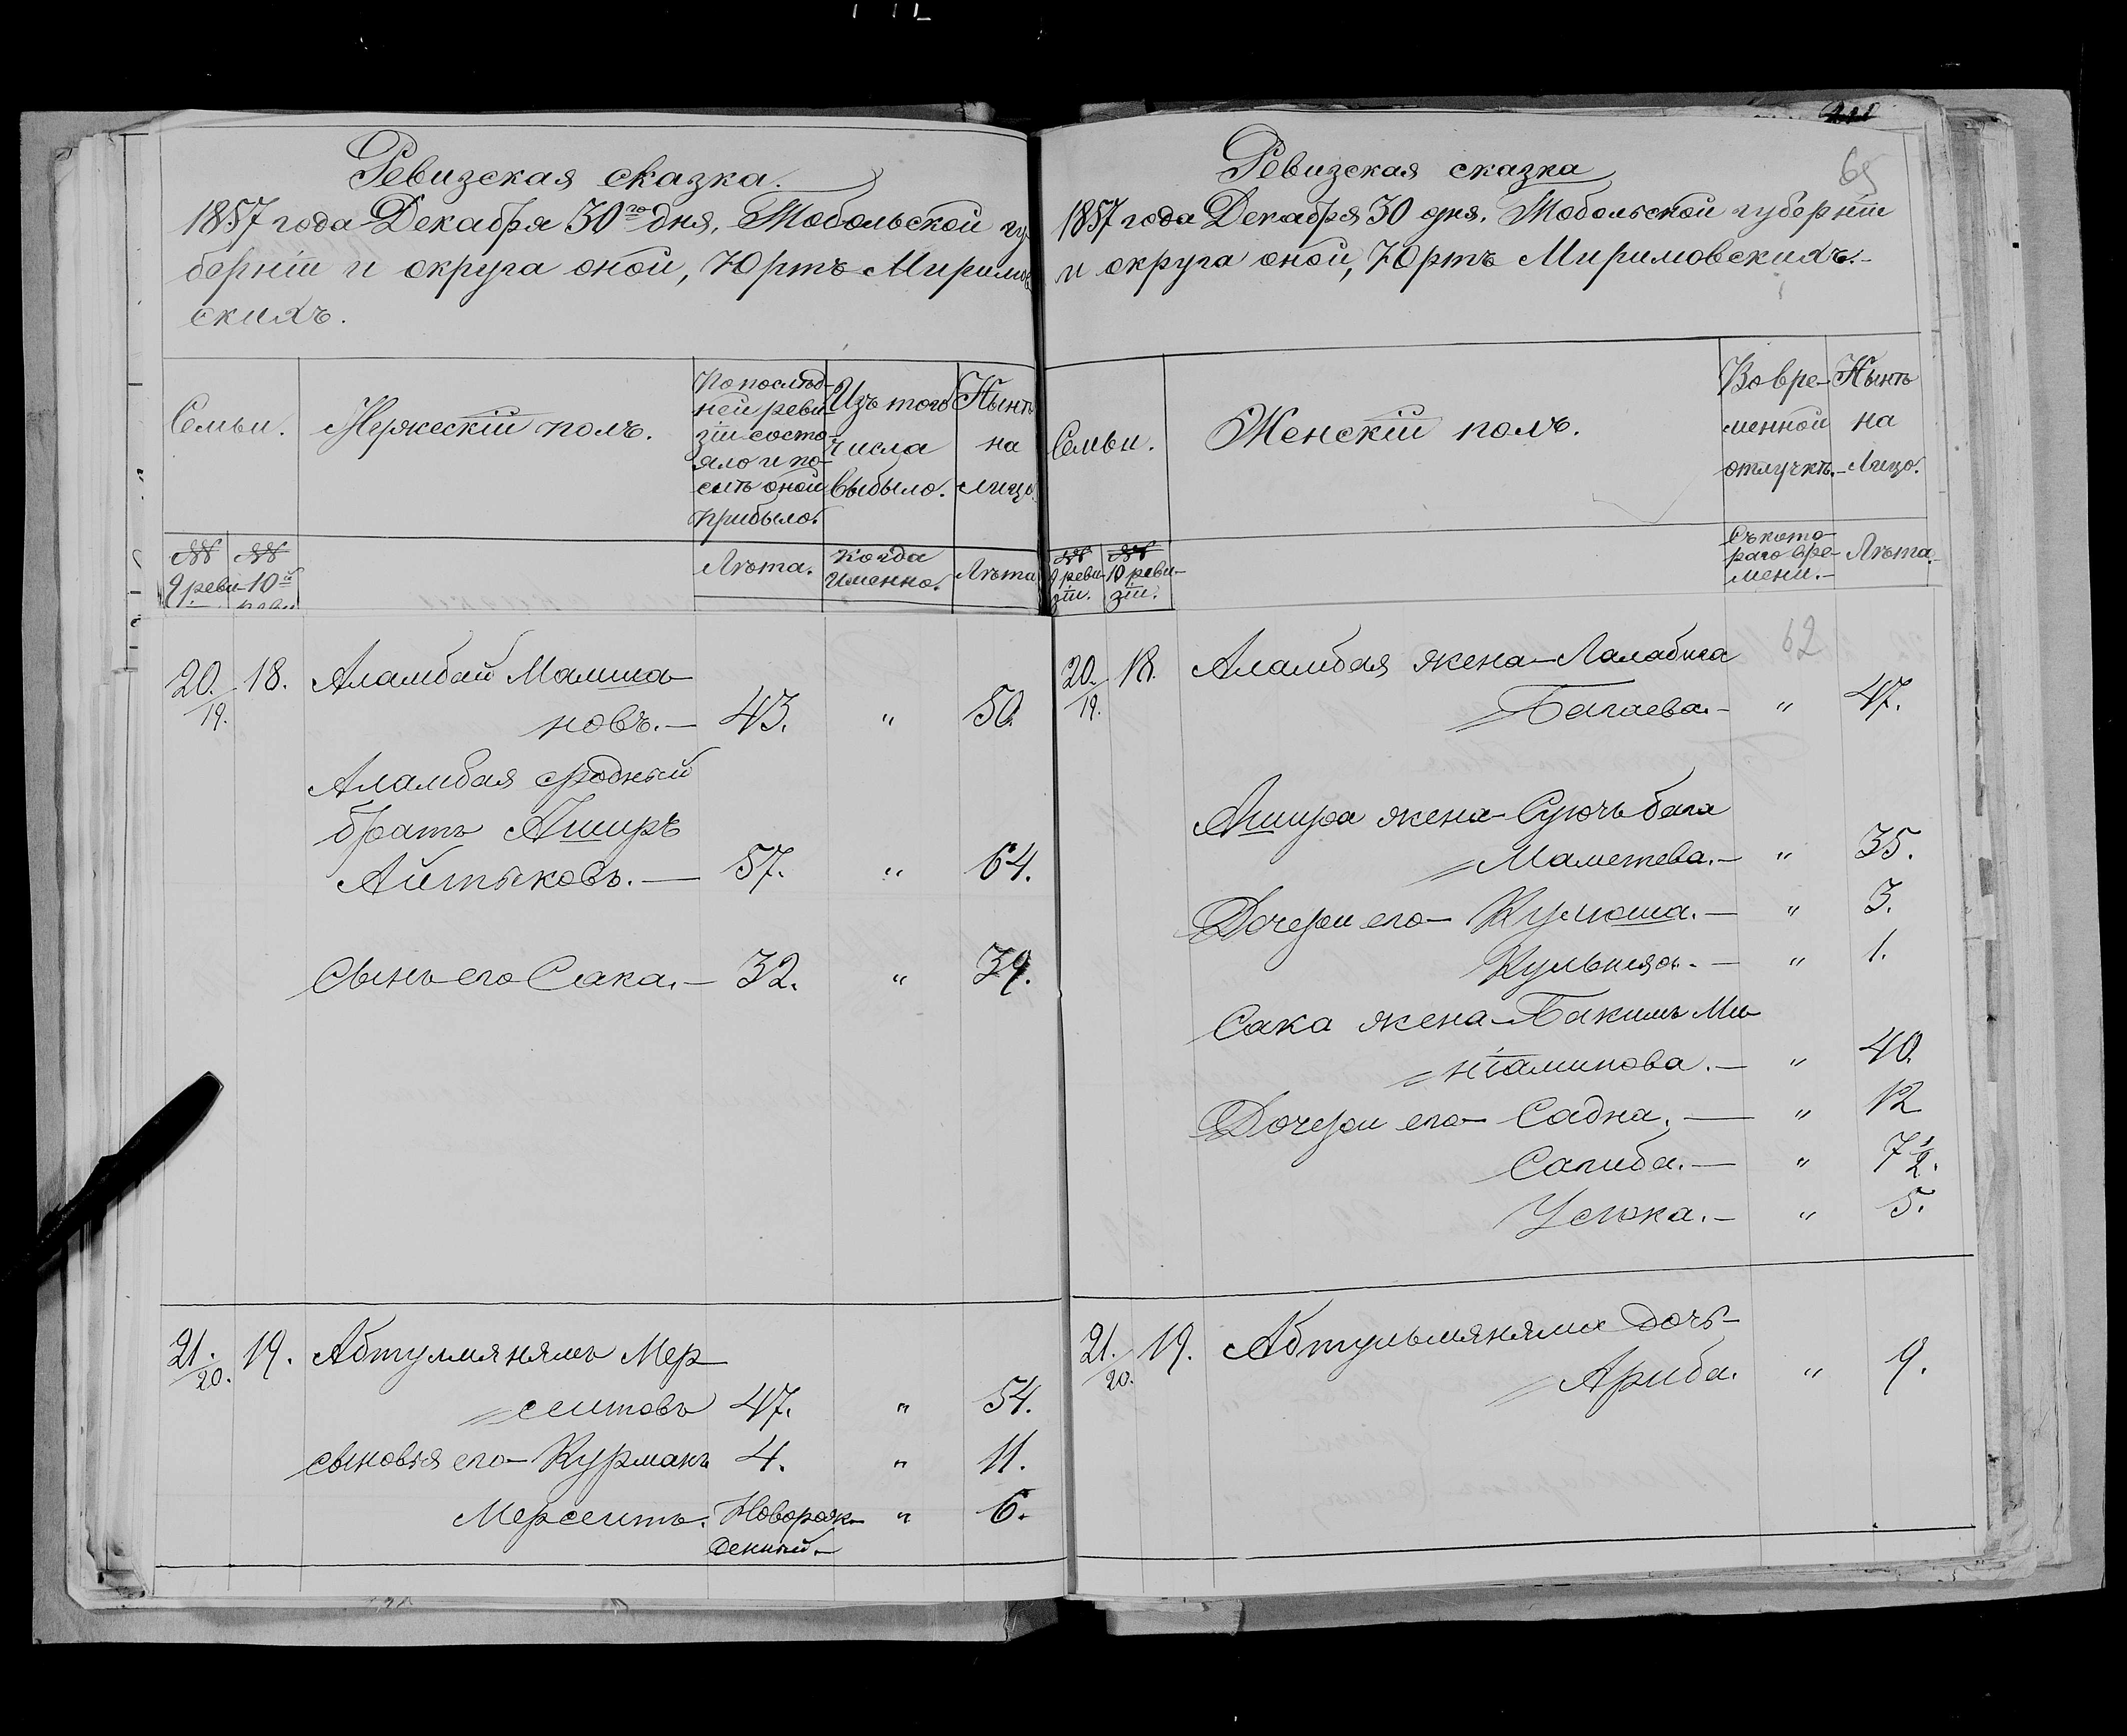 Ревизская сказка.
1857 года Декабря 30го дня, Тобольской гу-
берніи и округа оной, Юртъ Миримов
скихъ.
Семьи.
Мужескій полъ.
По послѣд-
ней реви-
зіи состо-
яло и по-
слѣ оной
прибыло.
Изъ того
числа
выбыло.
Нынѣ
на
лицо.
№№
9 реви-
№№
10й
Лѣта.
Когда
именно.
Лѣта
20./19. 18. Аламбай Мамша-
новъ.— 43. " 50.
Аламбая сродный
братъ Аширъ
Айтыковъ.— 57. " 64.
Сынъ его Сака.— 32. " 39.
21./20. 19. Абтулмянямъ Мер-
сеитовъ 47. " 54.
сыновья его— Курманъ 4. " 11.
Мерсеитъ. Новорож- " 6.
денный.—
65
Ревизская сказка
1857 года Декабря 30 дня. Тобольской губерніи
и округа оной, Юртъ Миримовскихъ.—
Семьи.
Женскій полъ.
Во вре-
менной
отлучкѣ.—
Нынѣ
на
Лицо.
№№
9 реви-
зіи.
№№
10 реви-
зіи.
Съ кото-
раго вре-
мени.—
Лѣта.
62
20./19. 18. Аламбая жена— Лалабига
Багаева.— " 47.
Ашира жена— Суючьбага
Маметева.— " 35.
Дочери его— Кулюша.— " 3.
" 1.
Сака жена— Бакимъ Ми-
" 40.
Дочери его— Садна.— " 12
Сапиба.— " 7 1/2.
Услюка.— " 5.
21./20. 19. Абтульмяняма дочь—
Ариба. " 9.